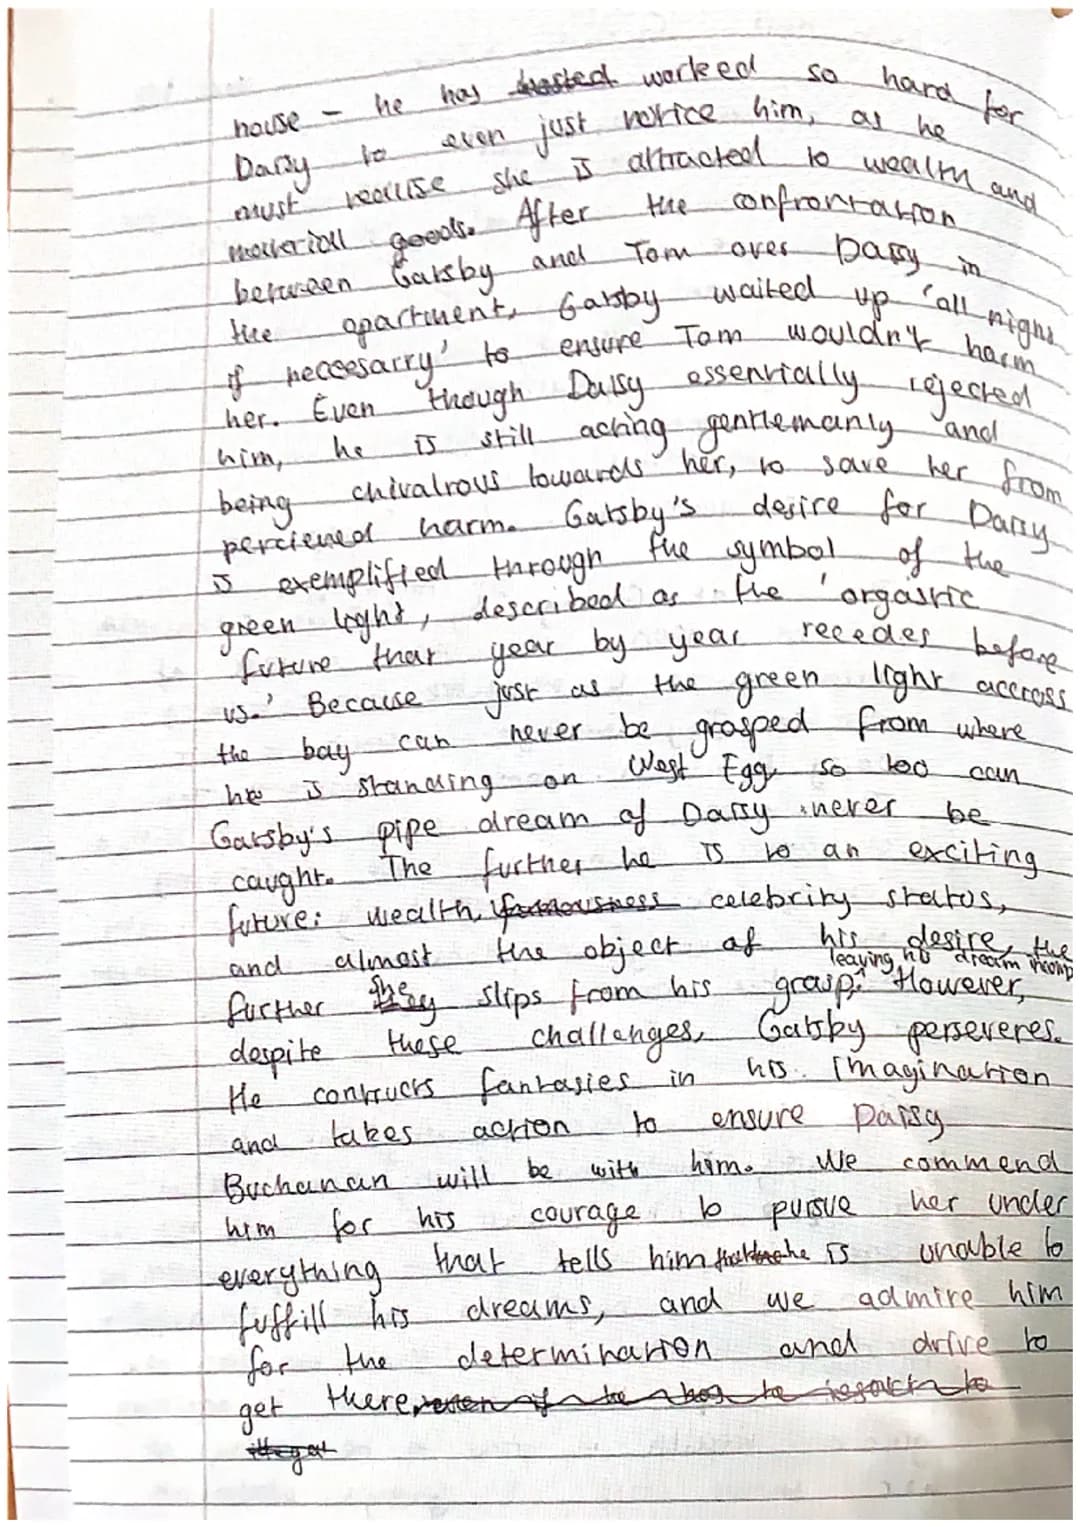 house - he has hosted worked so hard for
Daisy to even just notice him, as he
must realise she is attracted to wealth and
material goods. After the confrontation
between Gatsby and Tom over Daisy in
the apartment, Gatsby waited up 'all night
if neccesarry' to ensure Tom wouldn't harm
her. Even though Daisy essentially rejected
him, he is still acting gentlemanly and
being chivalrous towards her, to save her from
percieved harm. Gatsby's desire for Daisy
is exemplified through the symbol of the
green light, described as the 'orgastic
future that year by year recedes before
us.' Because just as the green light accross
the bay can never be grasped from where
he is standing on West Egg so too can
Gatsby's pipe dream of Daisy never be
caught. The further he is to an exciting
future: wealth, famousness celebrity status,
and almost the object of his desire, the
leaving his dream incomp
further she slips from his grasp. However,
despite these challenges, Gatsby perseveres.
He contructs fantasies in his imagination
and takes action to ensure Daisy
Buchanan will be with him. We commend
him for his courage to pursue her under
everything that tells him he is unable to
fuffill his dreams, and we admire him
for the determination and drive to
get there, even if he has to resort to
illegal